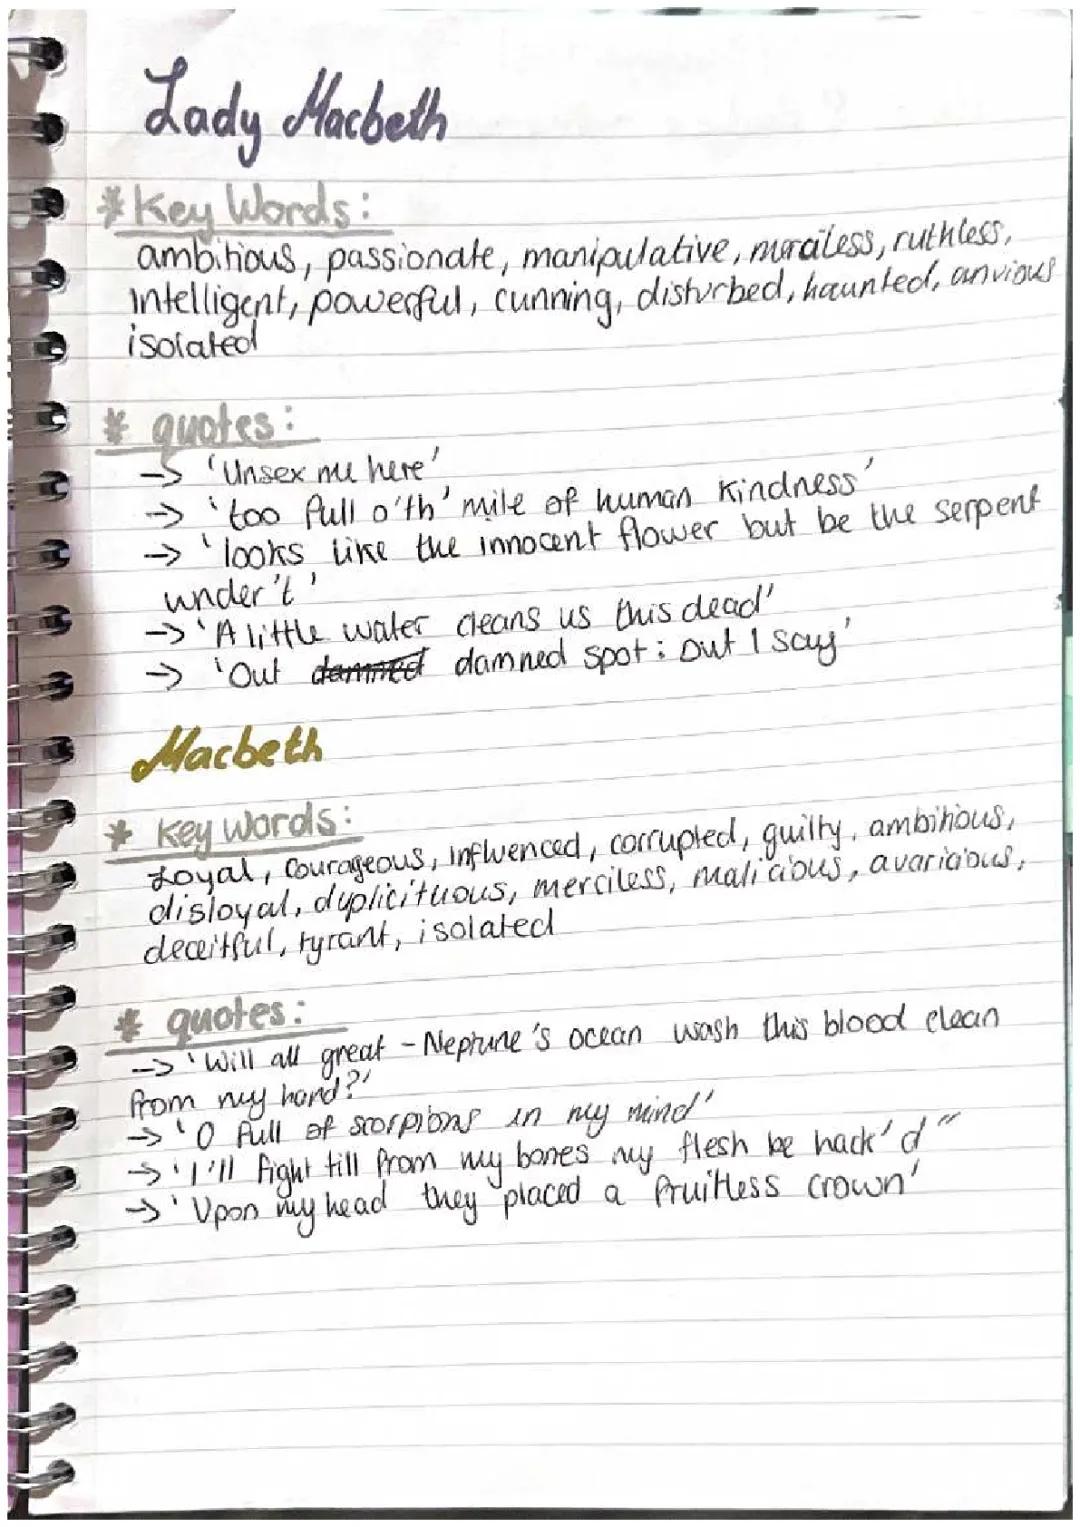 Lady Macbeth
* Key Words:
ambitious, passionate, manipulative, merciless, ruthless,
intelligent, powerful, cunning, disturbed, haunted, anvious
isolated
* quotes:
-> 'Unsex me here'
-> 'too full o'th' milk of human kindness'
-> 'looks like the innocent flower but be the serpent
under't'
-> 'A little water cleans us this dead'
-> 'Out damned damned spot: out I say'
Macbeth
* key words:
Loyal, courageous, influenced, corrupted, guilty, ambitious,
disloyal, duplicituous, merciless, malicious, avaricious,
deceitful, tyrant, isolated
* quotes:
-> 'Will all great - Neptune's ocean wash this blood clean
from my hand?'
-> 'O full of scorpions in my mind'
-> 'I'll fight till from my bones my flesh be hack'd"
-> 'Upon my head they placed a fruitless crown'